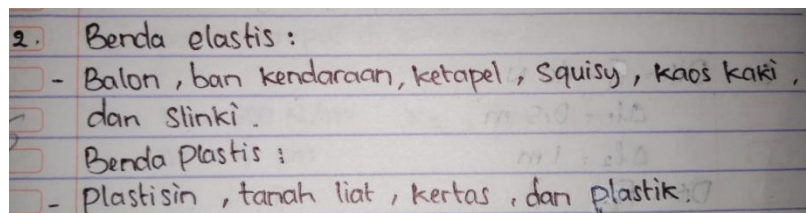 2. Benda elastis :
- Balon , ban kendaraan, ketapel , Squisy , kaos kaki ,
dan Slinki .
Benda Plastis :
- Plastisin , tanah liat , kertas , dan plastik .